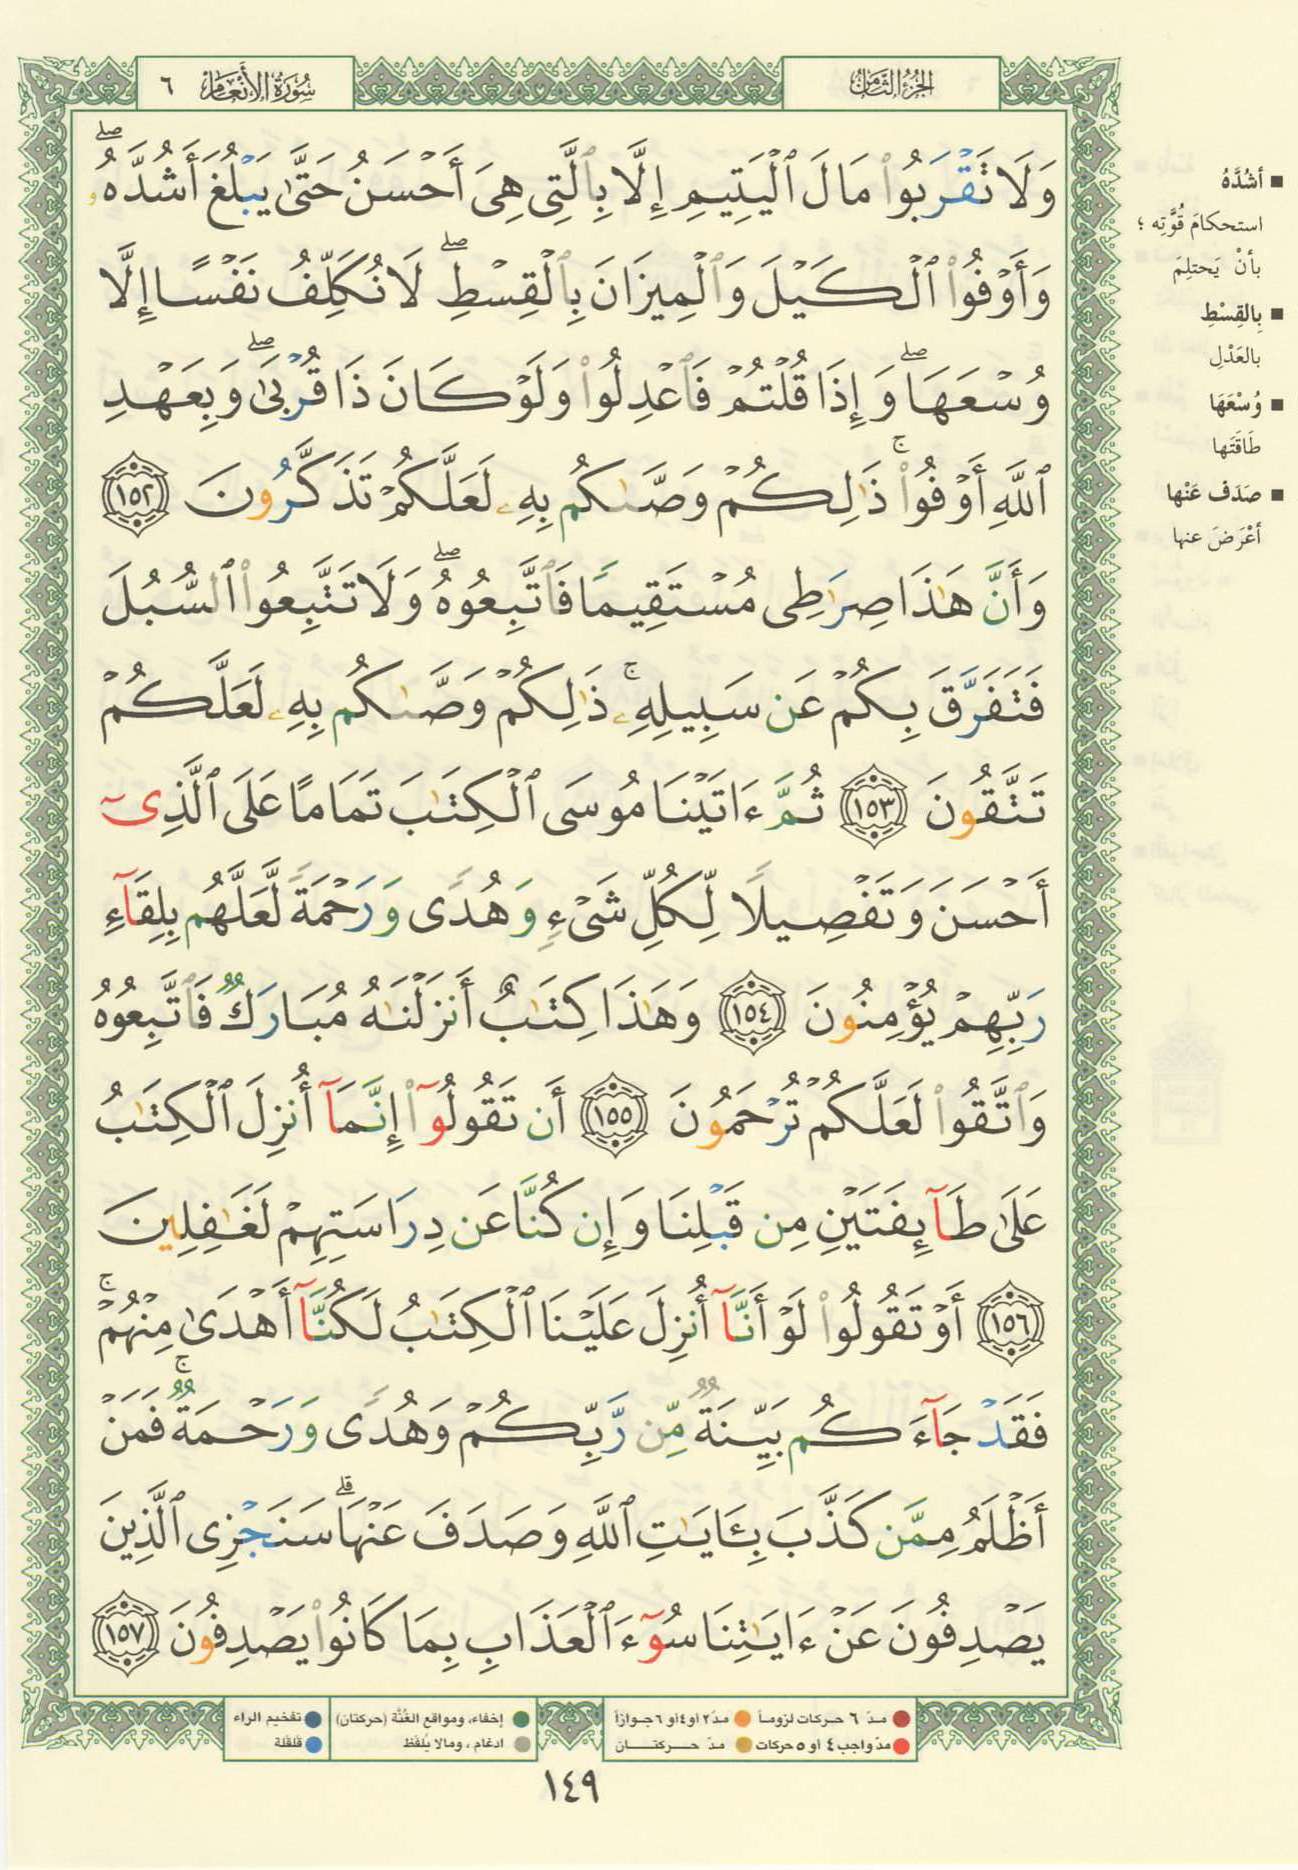 سُورَةُ الأَنْعَامِ ٦
الجُزْءُ الثَّامِنُ
وَلَا تَقْرَبُوا۟ مَالَ ٱلْيَتِيمِ إِلَّا بِٱلَّتِى هِىَ أَحْسَنُ حَتَّىٰ يَبْلُغَ أَشُدَّهُۥ ۖ
وَأَوْفُوا۟ ٱلْكَيْلَ وَٱلْمِيزَانَ بِٱلْقِسْطِ ۖ لَا نُكَلِّفُ نَفْسًا إِلَّا
وُسْعَهَا ۖ وَإِذَا قُلْتُمْ فَٱعْدِلُوا۟ وَلَوْ كَانَ ذَا قُرْبَىٰ ۖ وَبِعَهْدِ
ٱللَّهِ أَوْفُوا۟ ۚ ذَٰلِكُمْ وَصَّىٰكُم بِهِۦ لَعَلَّكُمْ تَذَكَّرُونَ ١٥٢
وَأَنَّ هَـٰذَا صِرَٰطِى مُسْتَقِيمًا فَٱتَّبِعُوهُ ۖ وَلَا تَتَّبِعُوا۟ ٱلسُّبُلَ
فَتَفَرَّقَ بِكُمْ عَن سَبِيلِهِۦ ۚ ذَٰلِكُمْ وَصَّىٰكُم بِهِۦ لَعَلَّكُمْ
تَتَّقُونَ ١٥٣ ثُمَّ ءَاتَيْنَا مُوسَى ٱلْكِتَـٰبَ تَمَامًا عَلَى ٱلَّذِىٓ
أَحْسَنَ وَتَفْصِيلًا لِّكُلِّ شَىْءٍ وَهُدًى وَرَحْمَةً لَّعَلَّهُم بِلِقَآءِ
رَبِّهِمْ يُؤْمِنُونَ ١٥٤ وَهَـٰذَا كِتَـٰبٌ أَنزَلْنَـٰهُ مُبَارَكٌ فَٱتَّبِعُوهُ
وَٱتَّقُوا۟ لَعَلَّكُمْ تُرْحَمُونَ ١٥٥ أَن تَقُولُوٓا۟ إِنَّمَآ أُنزِلَ ٱلْكِتَـٰبُ
عَلَىٰ طَآئِفَتَيْنِ مِن قَبْلِنَا وَإِن كُنَّا عَن دِرَاسَتِهِمْ لَغَـٰفِلِينَ
١٥٦ أَوْ تَقُولُوا۟ لَوْ أَنَّآ أُنزِلَ عَلَيْنَا ٱلْكِتَـٰبُ لَكُنَّآ أَهْدَىٰ مِنْهُمْ ۚ
فَقَدْ جَآءَكُم بَيِّنَةٌ مِّن رَّبِّكُمْ وَهُدًى وَرَحْمَةٌ ۚ فَمَنْ
أَظْلَمُ مِمَّن كَذَّبَ بِـَٔايَـٰتِ ٱللَّهِ وَصَدَفَ عَنْهَا ۗ سَنَجْزِى ٱلَّذِينَ
يَصْدِفُونَ عَنْ ءَايَـٰتِنَا سُوٓءَ ٱلْعَذَابِ بِمَا كَانُوا۟ يَصْدِفُونَ ١٥٧
■ أَشُدَّهُ
استحكامَ قُوَّتِه ؛
بأنْ يَحتلِمَ
■ بِالقِسْطِ
بالعَدْلِ
■ وُسْعَهَا
طَاقَتَها
■ صَدَفَ عَنْها
أَعْرَضَ عنها
● مدّ ٦ حركات لزوماً ● مدّ٢ أو٤أو ٦جوازاً
● مدّ واجب٤ أو ٥ حركات ● مدّ حــركتــان
● إخفاء، ومواقع الغُنَّة (حركتان) ● تفخيم الراء
● ادغام ، ومالا يُلفَظ ● قلقلة
١٤٩